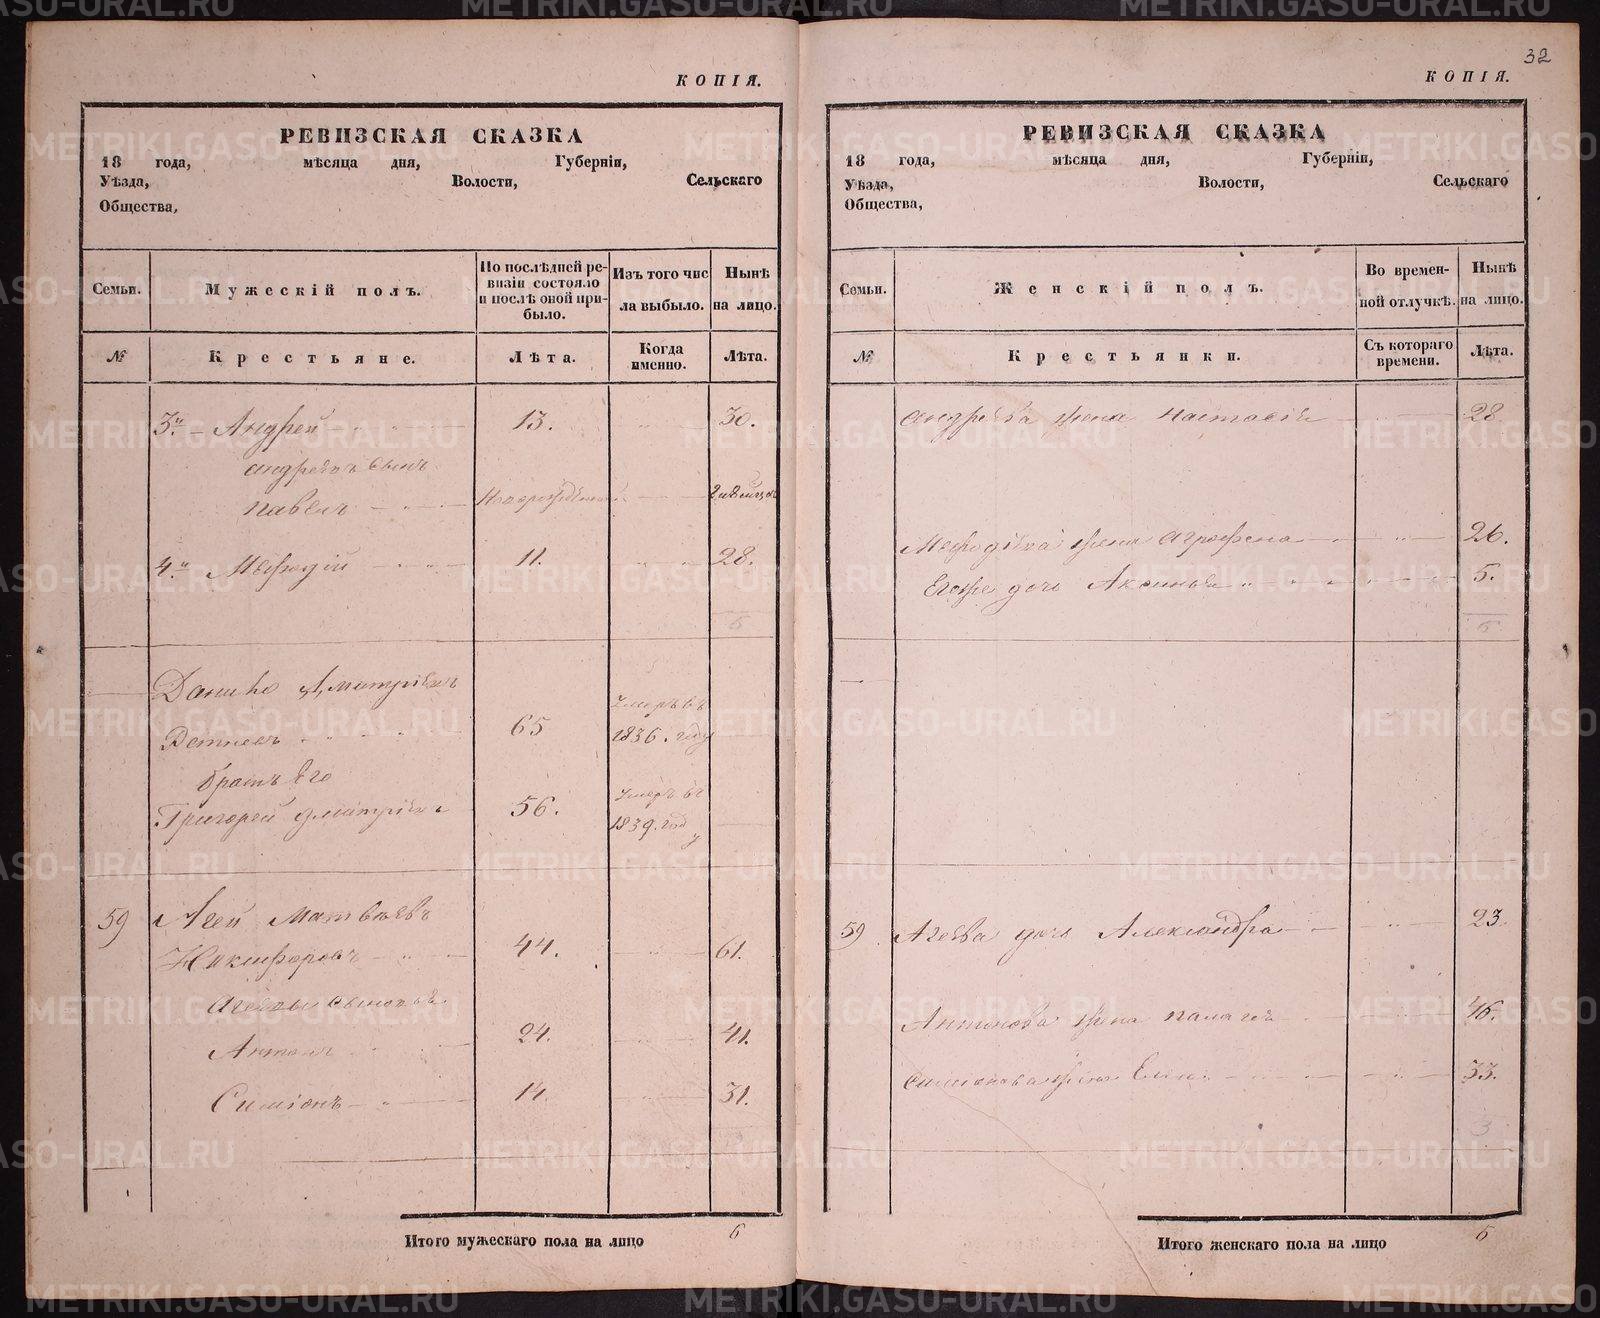 КОПІЯ.
РЕВИЗСКАЯ СКАЗКА
18 года, мѣсяца дня, Губерніи,
Уѣзда, Волости, Сельскаго
Общества,
Семьи. Мужескій полъ. По послѣдней ре-визіи состояло и послѣ оной при-было. Изъ того чис ла выбыло. Нынѣ на лицо.
№ Крестьяне. Лѣта. Когда именно. Лѣта.
3. Андрей 13. 30.
Андреевъ сынъ
Павелъ
4. Мефодій 11. 28.
6
Данило Дмитріевъ
65 Умеръ въ 1836. году
братъ Его
Григорей Дмитріевъ 56. Умеръ въ 1839. году
59 Агей Матвѣевъ
Никифоровъ 44. 61.
Агеевы сыновья
Антонъ 24. 41.
Симіонъ 14. 31.
Итого мужескаго пола на лицо 6
32
КОПІЯ.
РЕВИЗСКАЯ СКАЗКА
18 года, мѣсяца дня, Губерніи,
Уѣзда, Волости, Сельскаго
Общества,
Семьи. Женскій полъ. Во времен-ной отлучкѣ. Нынѣ на лицо.
№ Крестьянки. Съ котораго времени. Лѣта.
Андреева жена Настасія 28
Мефодіева жена Аграфена 26.
Егоже дочь Аксинья 5.
59 Агеева дочь Александра 23
Антонова жена Палагея 46.
Симіонова жена Елена 33.
3
Итого женскаго пола на лицо 6
METRIKI.GASO-URAL.RU